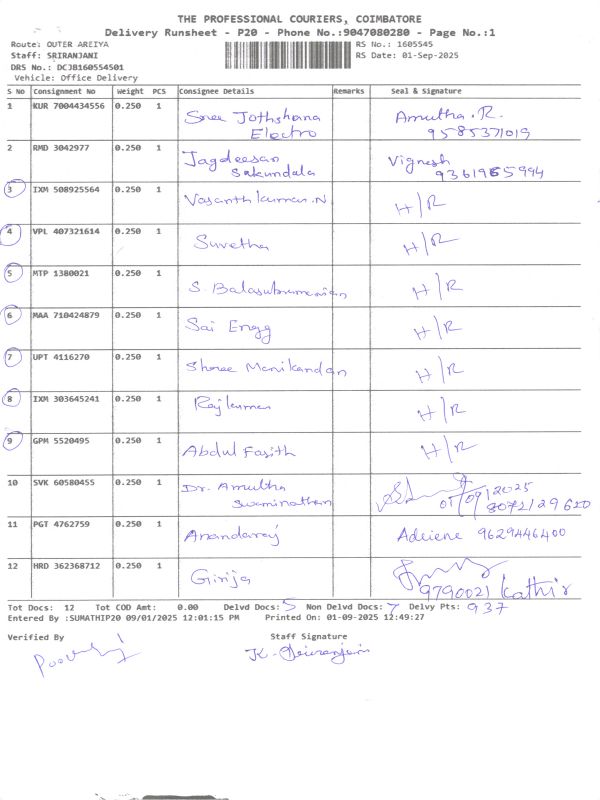 THE PROFESSIONAL COURIERS, COIMBATORE
Delivery Runsheet - P20 - Phone No.:9047080280 - Page No.:1
Route: OUTER AREIYA RS No.: 1605545
Staff: SRIRANJANI RS Date: 01-Sep-2025
DRS No.: DCJB160554501
Vehicle: Office Delivery
S No Consignment No Weight PCS Consignee Details Remarks Seal & Signature
1 KUR 7004434556 0.250 1 Sree Jothshana Amutha.R.
Electro 9585371019
2 RMD 3042977 0.250 1 Jagdeesan Vignesh
Sakundala 9361965994
3 IXM 508925564 0.250 1 Vasanthkumar.N H/R
4 VPL 407321614 0.250 1 Suvetha H/R
5 MTP 1380021 0.250 1 S. Balasubramanian H/R
6 MAA 710424879 0.250 1 Sai Engg H/R
7 UPT 4116270 0.250 1 Shree Manikandan H/R
8 IXM 303645241 0.250 1 Rajkumar H/R
9 GPM 5520495 0.250 1 Abdul Fasith H/R
10 SVK 60580455 0.250 1 Dr. Amutha 01/09/2025
Swaminathan 8072129620
11 PGT 4762759 0.250 1 Anandaraj Adeiene 9629446400
12 HRD 362368712 0.250 1 Girija
9790021 Kathir
Tot Docs: 12 Tot COD Amt: 0.00 Delvd Docs: 5 Non Delvd Docs: 7 Delvy Pts: 937
Entered By :SUMATHIP20 09/01/2025 12:01:15 PM Printed On: 01-09-2025 12:49:27
Verified By Staff Signature
K.